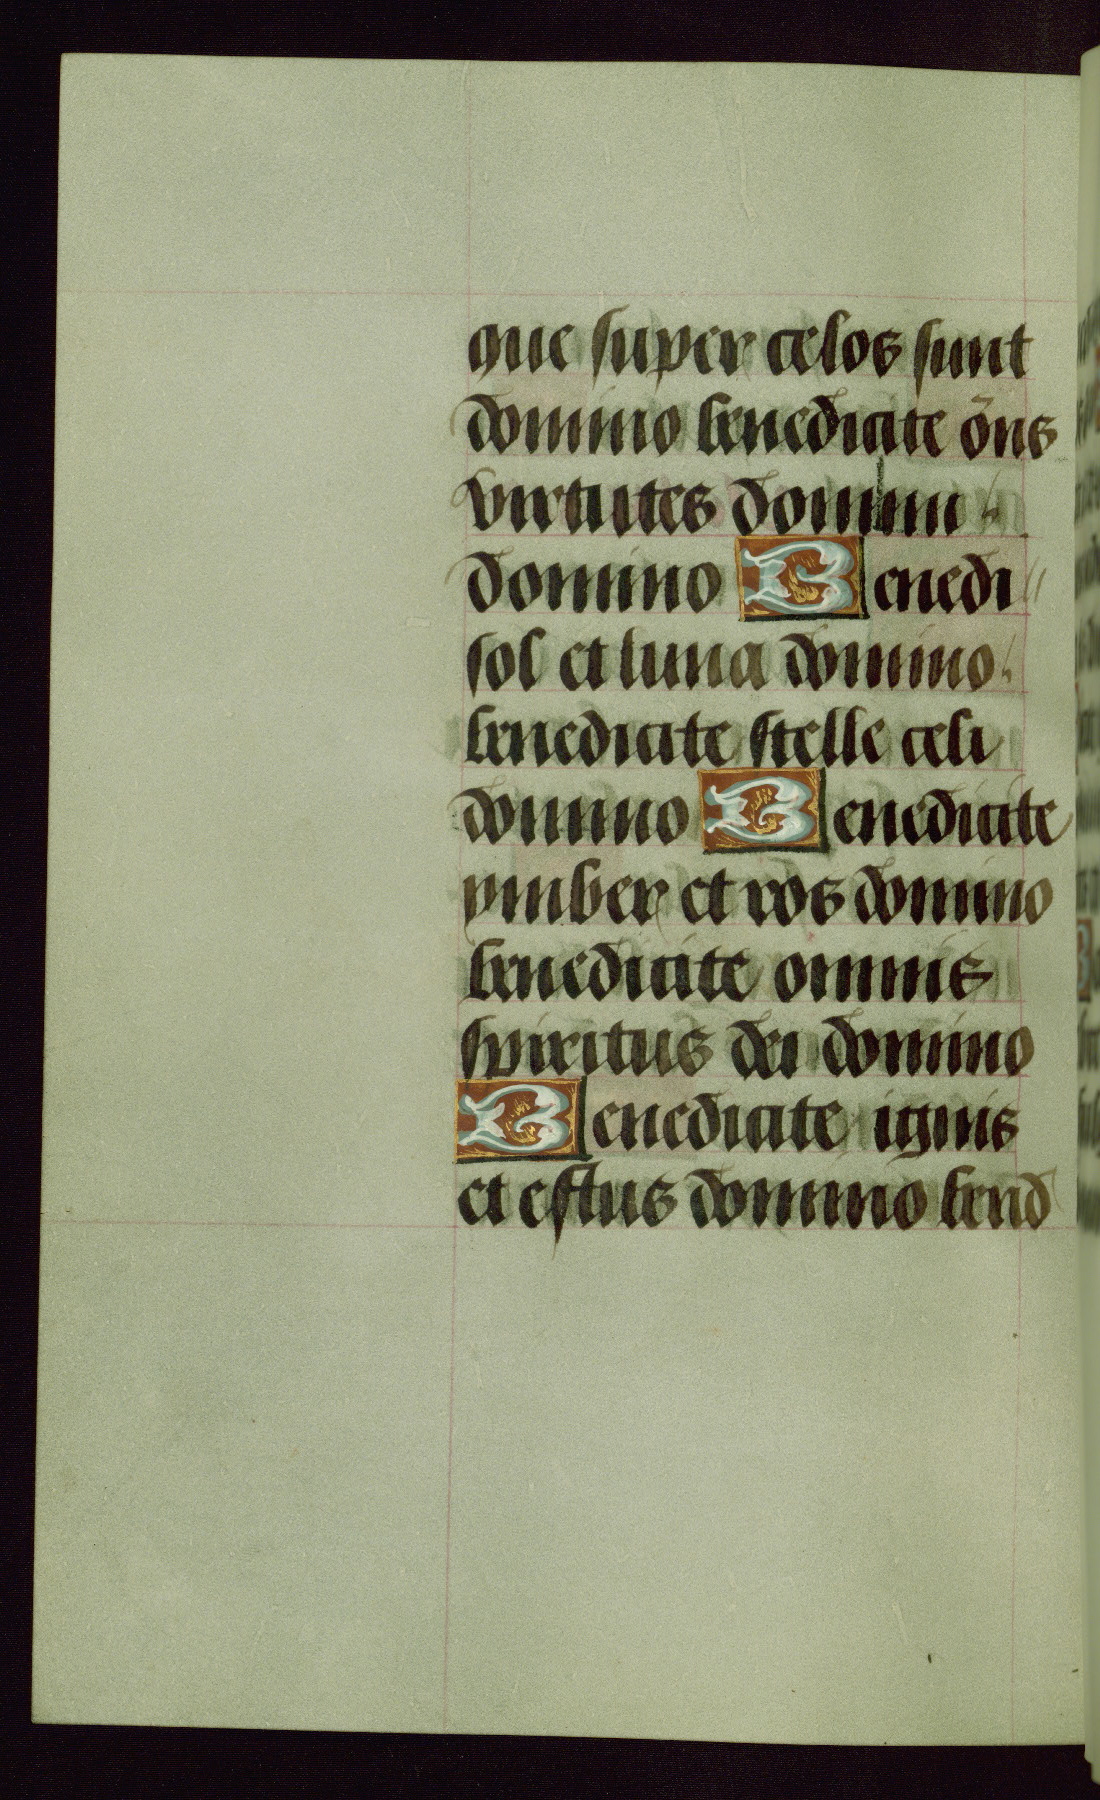 que super celos sunt
domino benedicite õns
virtutes domini
domino Benedi
sol et luna domino
benedicite stelle celi
domino Benedicite
ymber et ros domino
benedicite omnis
spiritus dei domino
Benedicite ignis
et estus domino bend